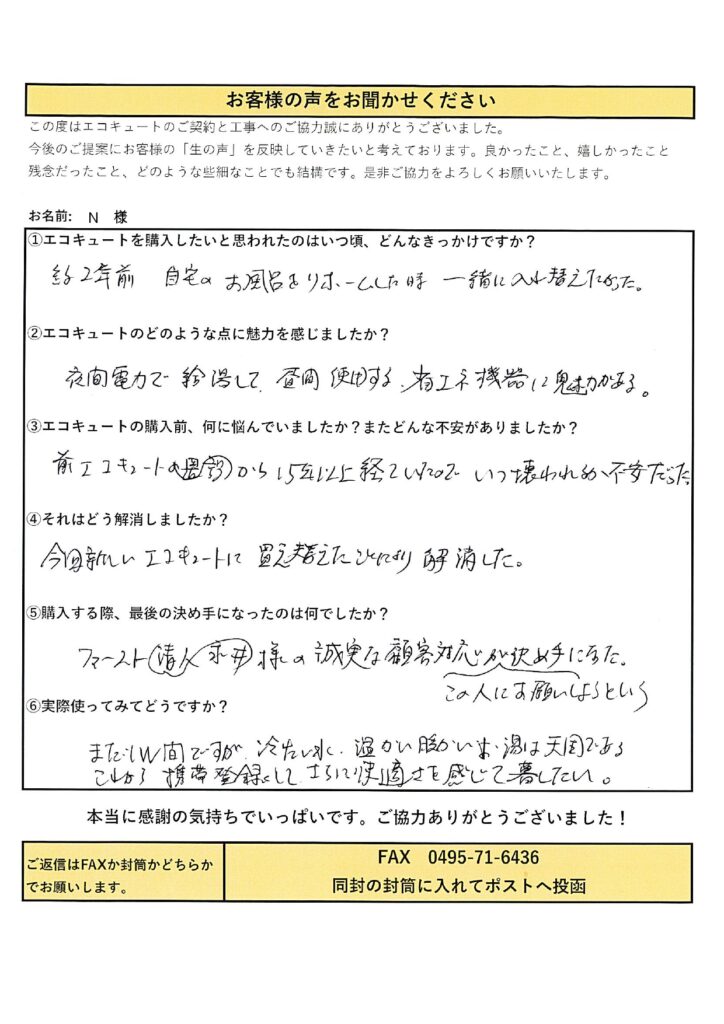 お客様の声をお聞かせください
この度はエコキュートのご契約と工事へのご協力誠にありがとうございました。
今後のご提案にお客様の「生の声」を反映していきたいと考えております。良かったこと、嬉しかったこと
残念だったこと、どのような些細なことでも結構です。是非ご協力をよろしくお願いいたします。
お名前: N 様
①エコキュートを購入したいと思われたのはいつ頃、どんなきっかけですか？
約2年前 自宅の お風呂をリホームした時 一緒に入れ替えたかった。
②エコキュートのどのような点に魅力を感じましたか？
夜間電力で 給湯して、昼間 使用する、省エネ機器に魅力がある。
③エコキュートの購入前、何に悩んでいましたか？またどんな不安がありましたか？
前エコキュートの から 15年以上経っていたので いつ壊われるか、不安だった
④それはどう解消しましたか？
今回新しい エコキュートに 買え替えたことにより 解消した。
⑤購入する際、最後の決め手になったのは何でしたか？
ファースト 様の誠実な顧客対応が決め手になった。
この人にお願いしようという
⑥実際使ってみてどうですか？
まだ1W間ですが、冷たい水、温かい暖かいお湯は天国である
これから 携帯登録して さらに快適さを感じて暮したい。
本当に感謝の気持ちでいっぱいです。ご協力ありがとうございました！
ご返信はFAXか封筒かどちらか
でお願いします。
FAX 0495-71-6436
同封の封筒に入れてポストへ投函